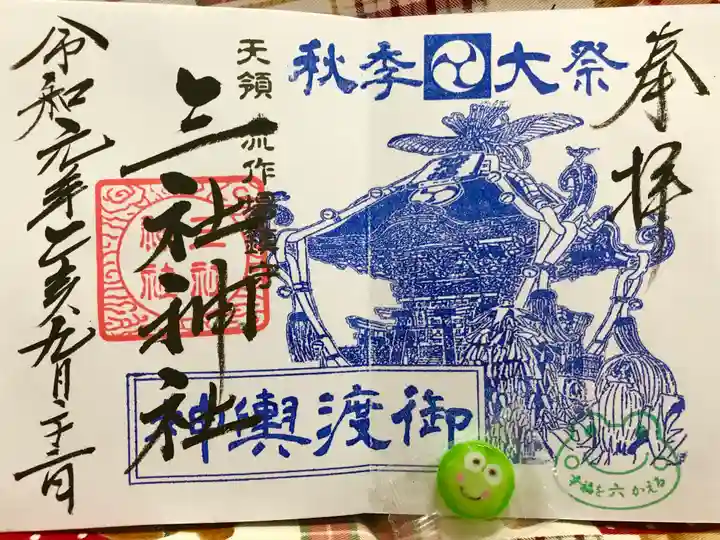 奉拝
秋季大祭
天領 流作場鎮守
三社神社
三社神社
神輿渡御
令和元年己亥九月二十二日
六かえる